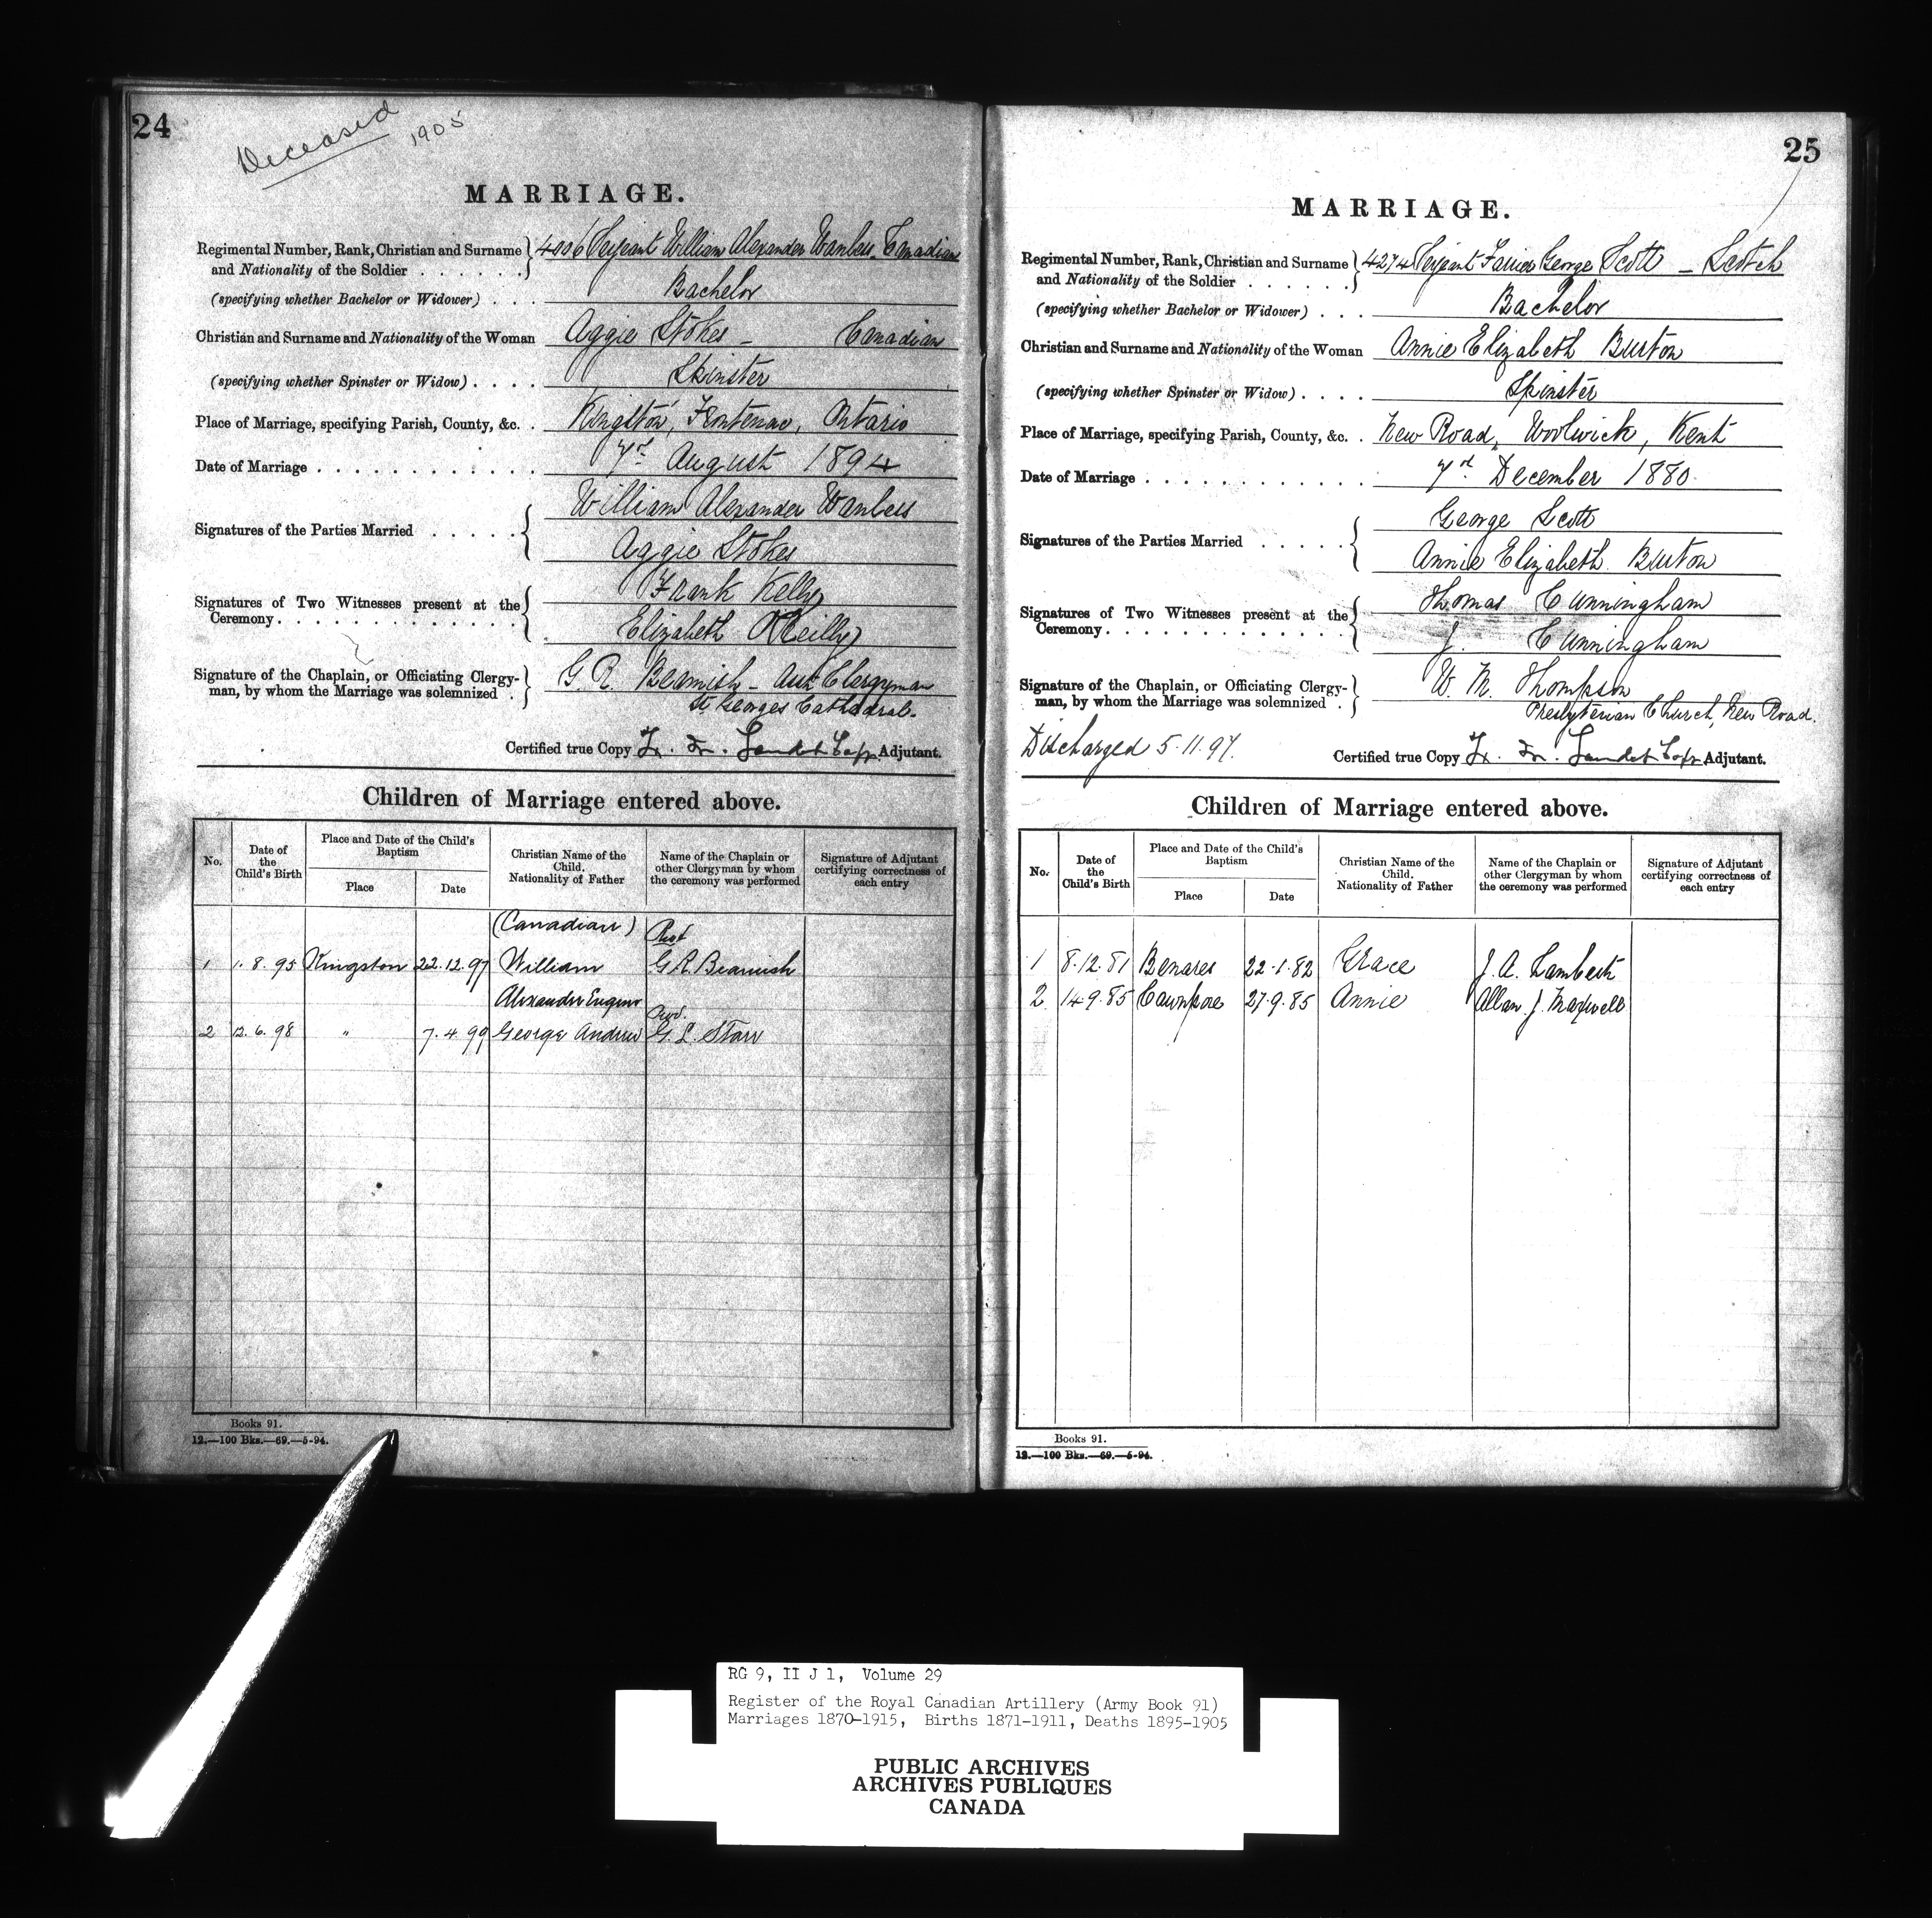 24
Deceased 1905
MARRIAGE.
Regimental Number, Rank, Christian and Surname and Nationality of the Soldier . . . . . . 4006 Serjeant William Alexander Wanless - Canadian
(specifying whether Bachelor or Widower) . . . Bachelor
Christian and Surname and Nationality of the Woman Aggie Stokes - Canadian
(specifying whether Spinster or Widow) . . . . Spinster
Place of Marriage, specifying Parish, County, &c. . Kingston, Frontenac, Ontario
Date of Marriage . . . . . . . . . . . . 7th August 1894
Signatures of the Parties Married . . . . . William Alexander Wanless
Aggie Stokes
Signatures of Two Witnesses present at the Ceremony. . . . . . . . . . . . . Frank Kelly
Elizabeth O'Reilly
Signature of the Chaplain, or Officiating Clergyman, by whom the Marriage was solemnized . G. R. Beamish - Clergyman
St. Georges Cathedral.
Certified true Copy Adjutant.
Children of Marriage entered above.
No. Date of the Child's Birth Place and Date of the Child's Baptism Place Date Christian Name of the Child. Nationality of Father Name of the Chaplain or other Clergyman by whom the ceremony was performed Signature of Adjutant certifying correctness of each entry
(Canadian)
1 1.8.95 Kingston 22.12.97 William G R. Beamish
Alexander Eugene
2 12.6.98 " 7.4.99 George Andrew G. L. Starr
Books 91.
12.—100 Bks.—69.—5-94.
25
MARRIAGE.
Regimental Number, Rank, Christian and Surname and Nationality of the Soldier . . . . . . 4274 Serjeant Farrier George Scott - Scotch
(specifying whether Bachelor or Widower) . . . Bachelor
Christian and Surname and Nationality of the Woman Annie Elizabeth Burton
(specifying whether Spinster or Widow) . . . . Spinster
Place of Marriage, specifying Parish, County, &c. . New Road, Woolwick, Kent
Date of Marriage . . . . . . . . . . . . 7th December 1880.
Signatures of the Parties Married . . . . . George Scott
Annie Elizabeth Burton
Signatures of Two Witnesses present at the Ceremony. . . . . . . . . . . . . Thomas Cunningham
J. Cunningham
Signature of the Chaplain, or Officiating Clergyman, by whom the Marriage was solemnized . W. M. Thompson
Presbyterian Church, New Road.
Discharged 5.11.97.
Certified true Copy Adjutant.
Children of Marriage entered above.
No. Date of the Child's Birth Place and Date of the Child's Baptism Place Date Christian Name of the Child. Nationality of Father Name of the Chaplain or other Clergyman by whom the ceremony was performed Signature of Adjutant certifying correctness of each entry
1 8.12.81 Benares 22.1.82 Grace J. A. Lambert
2 14.9.85 Cawnpore 27.9.85 Annie Allan J. Maxwell
Books 91.
12.—100 Bks.—69.—5-94.
RG 9, II J 1, Volume 29
Register of the Royal Canadian Artillery (Army Book 91)
Marriages 1870-1915, Births 1871-1911, Deaths 1895-1905
PUBLIC ARCHIVES
ARCHIVES PUBLIQUES
CANADA